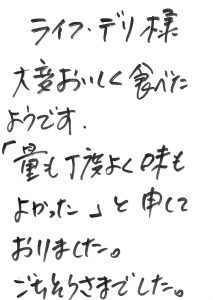 ライフ・デリ様
大変おいしく食べた
ようです.
「量も丁度よく味も
よかった」と申して
おりました。
ごちそうさまでした。